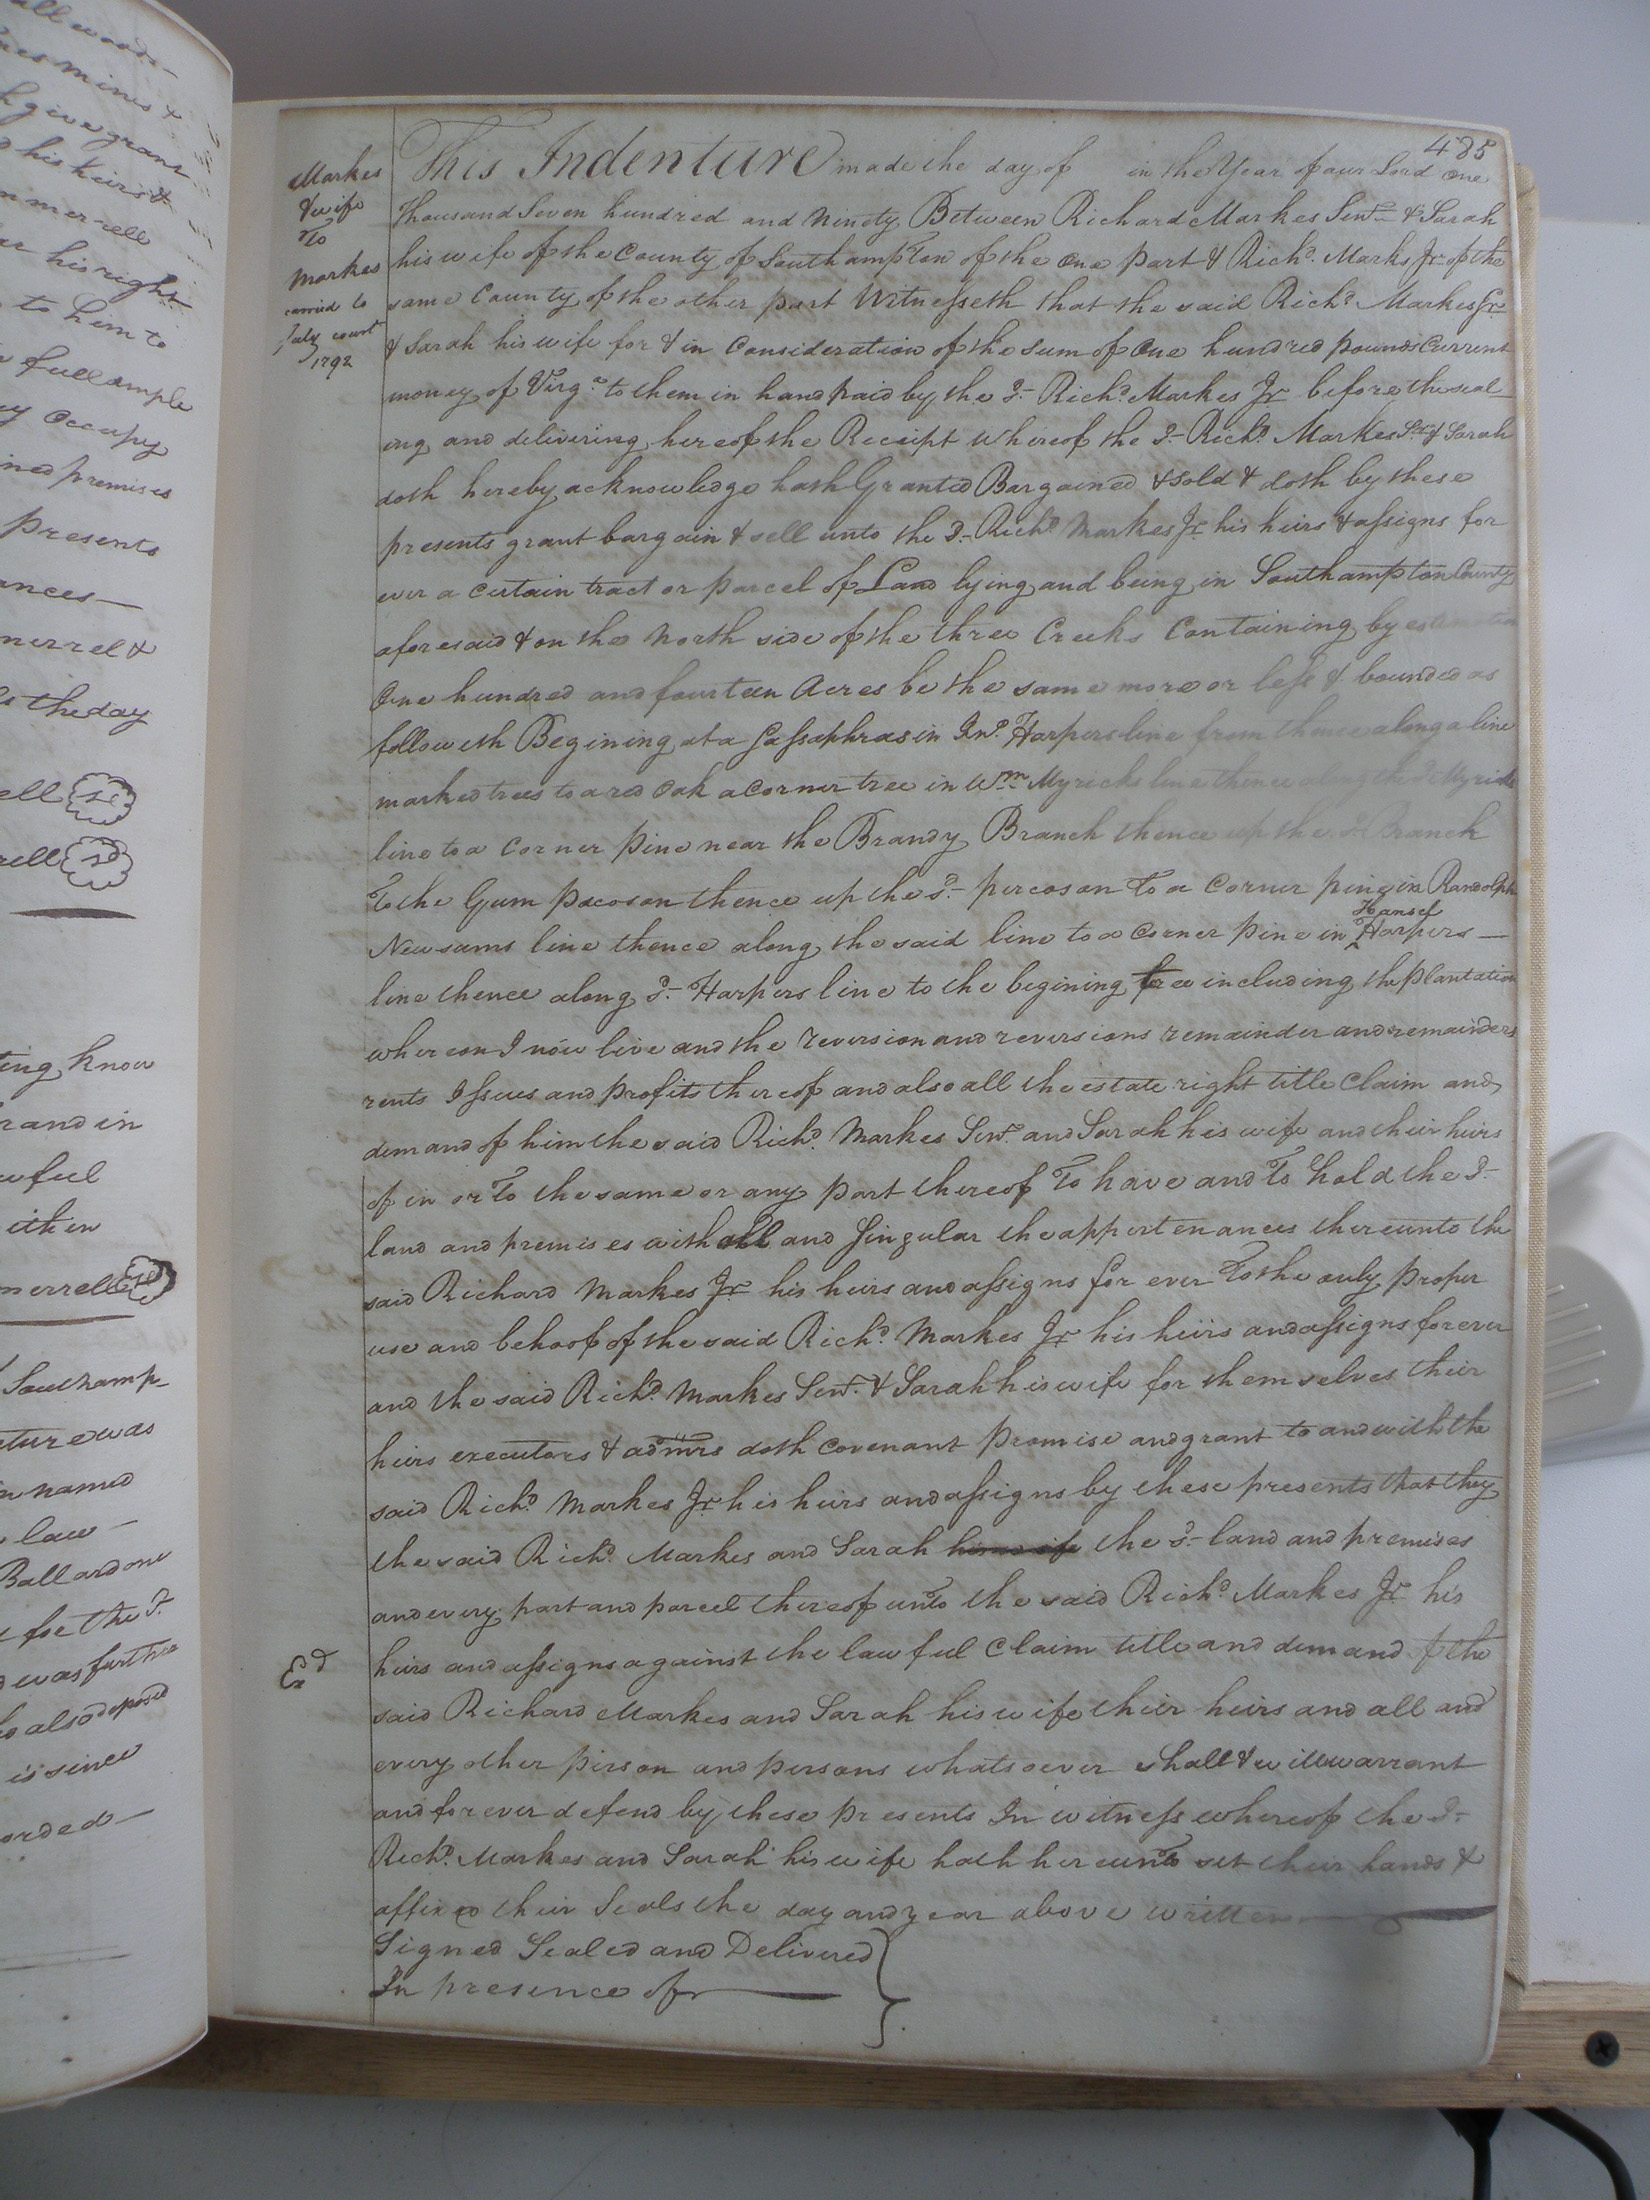 all woods
mines &
h give grant
his heirs &
mmerrell
his right
to him to
full ample
Occupy
ined premises
presents
ances—
merrel &
the day
ell
rell
ting know
hand in
wful
ithin
merrell
Southamp-
ture was
in named
law —
Ballard one
for the sd.
was further
also deposed
is since
orded —
485
Markes
& wife
To
Markes
carried to
July court
1792
This Indenture made the day of in the Year of our Lord One
Thousand Seven hundred and Ninety Between Richard Markes Senr. & Sarah
his wife of the County of Southampton of the One part & Richd. Marks Jr of the
same County of the other part Witnesseth that the said Richd. Markes Sr
& Sarah his wife for & in Consideration of the Sum of One hundred pounds Current
money of Virga. to them in hand paid by the sd. Richd. Markes Jr before the seal
ing and delivering hereof the Receipt Whereof the sd. Richd. Markes Senr & Sarah
doth hereby acknowledge hath Granted Bargained & sold & doth by these
presents grant bargain & sell unto the sd. Richd Markes Jr his heirs & assigns for
ever a certain tract or parcel of Land lying and being in Southampton County
aforesaid & on the North side of the three Creeks Containing by estimation
One hundred and fourteen Acres be the same more or less & bounded as
followeth Begining at a Sassaphras in Jno. Harpers line from thence along a line
marked trees to a red Oak a Corner tree in Wm Myricks line thence along the sd Myricks
line to a Corner Pine near the Brandy Branch thence up the sd Branch
To the Gum pocoson thence up the sd. percoson To a Corner pine in Randolph
Newsums line thence along the said line to a Corner Pine in Hansel Harpers —
line thence along sd. Harpers line to the begining tree including the plantation
whereon I now live and the reversion and reversions remainder and remainders
rents Issues and profits thereof and also all the estate right title Claim and
demand of him the said Richd. Markes Senr. and Sarah his wife and their heirs
of in or To the same or any part thereof To have and To hold the sd.
land and premises with all and Singular the appertenances thereunto the
said Richard Markes Jr his heirs and assigns for ever To the only proper
use and behoof of the said Richd. Markes Jr his heirs and assigns forever
and the said Richd. Markes Senr. & Sarah his wife for themselves their
heirs executors & admrs doth covenant promise and grant to and with the
said Richd. Markes Jr his heirs and assigns by these presents that they
the said Richd. Markes and Sarah his wife the sd. land and premises
and every part and parcel thereof unto the said Richd. Markes Jr his
heirs and assigns against the lawful Claim title and demand of the
said Richard Markes and Sarah his wife their heirs and all and
every other person and persons whatsoever shall & will warrant
and forever defend by these presents In witness whereof the sd.
Richd. Markes and Sarah his wife hath hereunto set their hands &
affixed their Seals the day and year above written
Signed Sealed and Delivered
In presence of
Exd